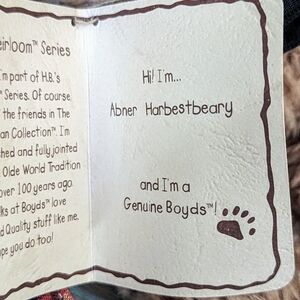 eirloom™ Series
I'm part of H.B.'s
™ Series. Of course
the friends in The
an Collection™. I'm
shed and fully jointed
Olde World Tradition
over 100 years ago.
ks at Boyds™ love
d Quality stuff like me.
pe you do too!
Hi! I'm...
Abner Harbestbeary
and I'm a
Genuine Boyds™!